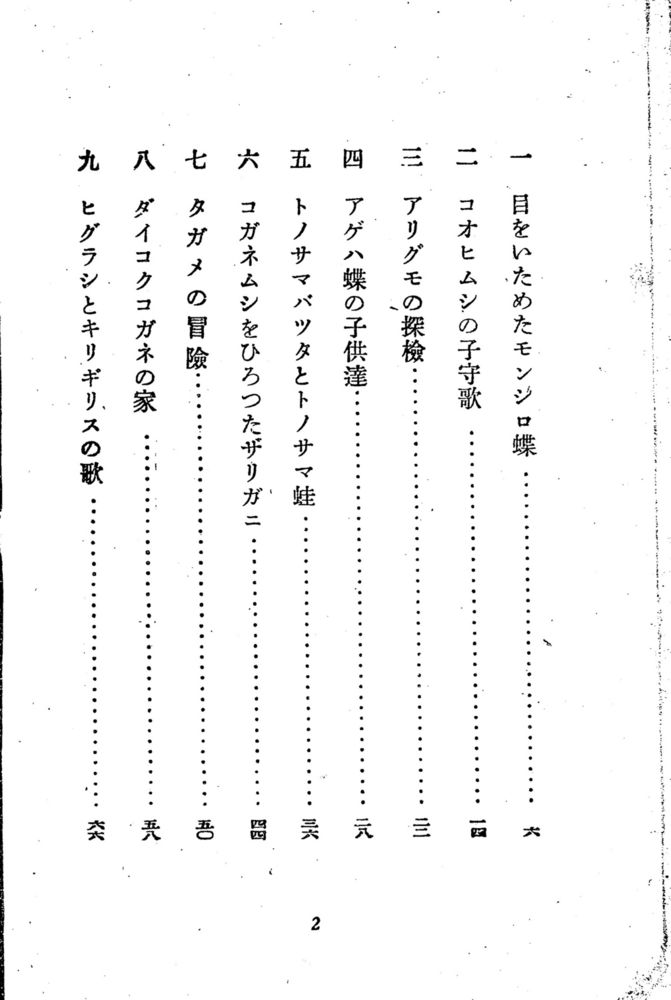 一 目をいためたモンシロ蝶……六
二 コオヒムシの子守歌……一四
三 アリグモの探檢……二二
四 アゲハ蝶の子供達……二八
五 トノサマバツタとトノサマ蛙……三六
六 コガネムシをひろつたザリガニ……四四
七 タガメの冒險……五〇
八 ダイコクコガネの家……五八
九 ヒグラシとキリギリスの歌……六六
2